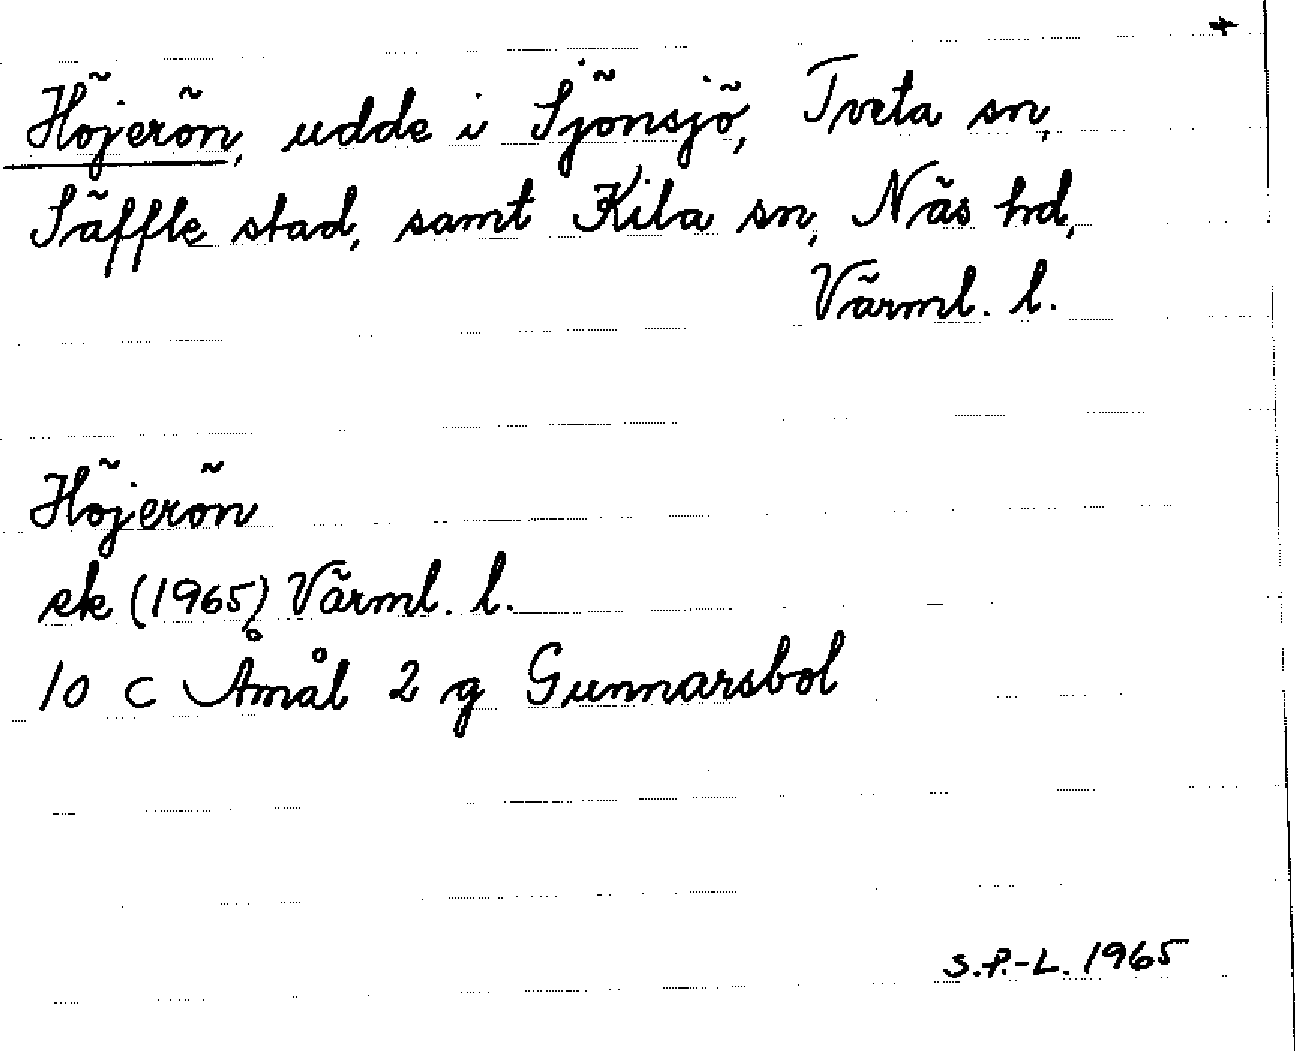 Höjerön, udde i Sjönsjö, Tveta sn,
Säffle stad, samt Kila sn, Näs hd,
Värml. l.
Höjerön
ek (1965) Värml. l.
10 C Åmål 2 g Gunnarsbol
S.P.-L. 1965